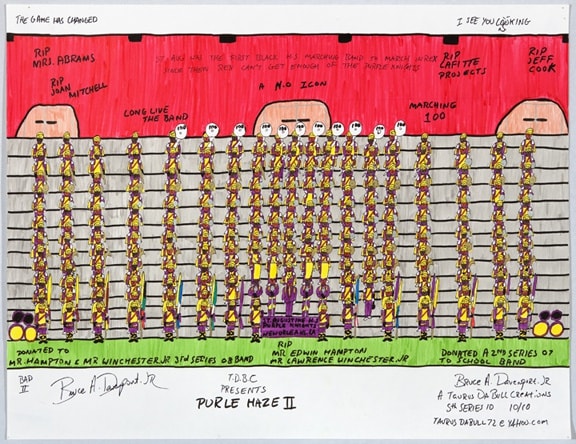 THE GAME HAS CHANGED
I SEE YOU LOOKING
RIP
MRS. ABRAMS
RIP
JOAN
MITCHELL
ST. AUG WAS THE FIRST BLACK H.S MARCHING BAND TO MARCH IN REX
SINCE THEN REX CAN'T GET ENOUGH OF THE PURPLE KNIGHTS
RIP
LAFITTE
PROJECTS
RIP
JEFF
COOK
A N.O ICON
LONG LIVE
THE BAND
MARCHING
100
ST. AUGUSTINE H.S
PURPLE KNIGHTS
NEW ORLEANS, LA
DONATED TO
MR. HAMPTON & MR WINCHESTER JR 3RD SERIES 08 BAND
RIP
MR EDWIN HAMPTON
MR LAWRENCE WINCHESTER JR
DONATED A 2ND SERIES 07
TO SCHOOL BAND
BAD
II
Bruce A. Davenport Jr
T.D.B.C
PRESENTS
PURLE HAZE II
Bruce A. Davenport Jr
A TAURUS DA BULL CREATIONS
5th SERIES 10 10/10
TAURUSDABULL72@YAHOO.COM